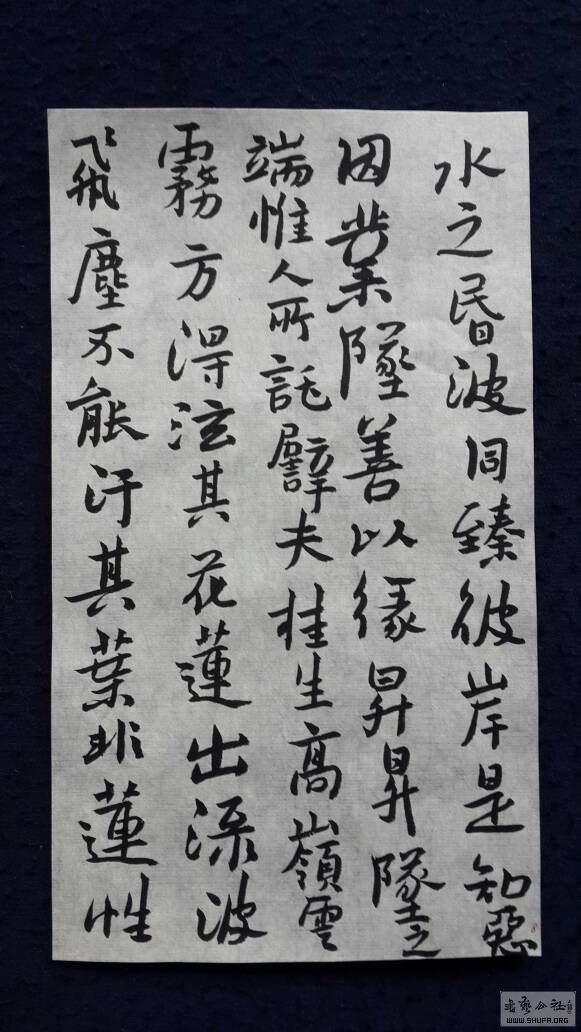 水之昬波同臻彼岸是知惡
因業墜善以緣昇昇墜之
端惟人所託譬夫桂生高嶺雲
霧方得泫其花蓮出淥波
飛塵不能汙其葉非蓮性
WWW.SHUFA.ORG